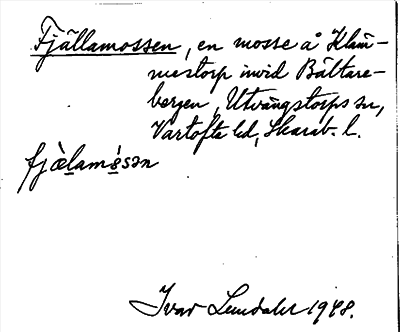 Fjällamossen, en mosse å Kläm-
mestorp invid Bältare-
bergen, Utvängstorps sn,
Vartofta hd, Skarab. l.
fjä̀lamǿsən
Ivar Lundahl 1948.